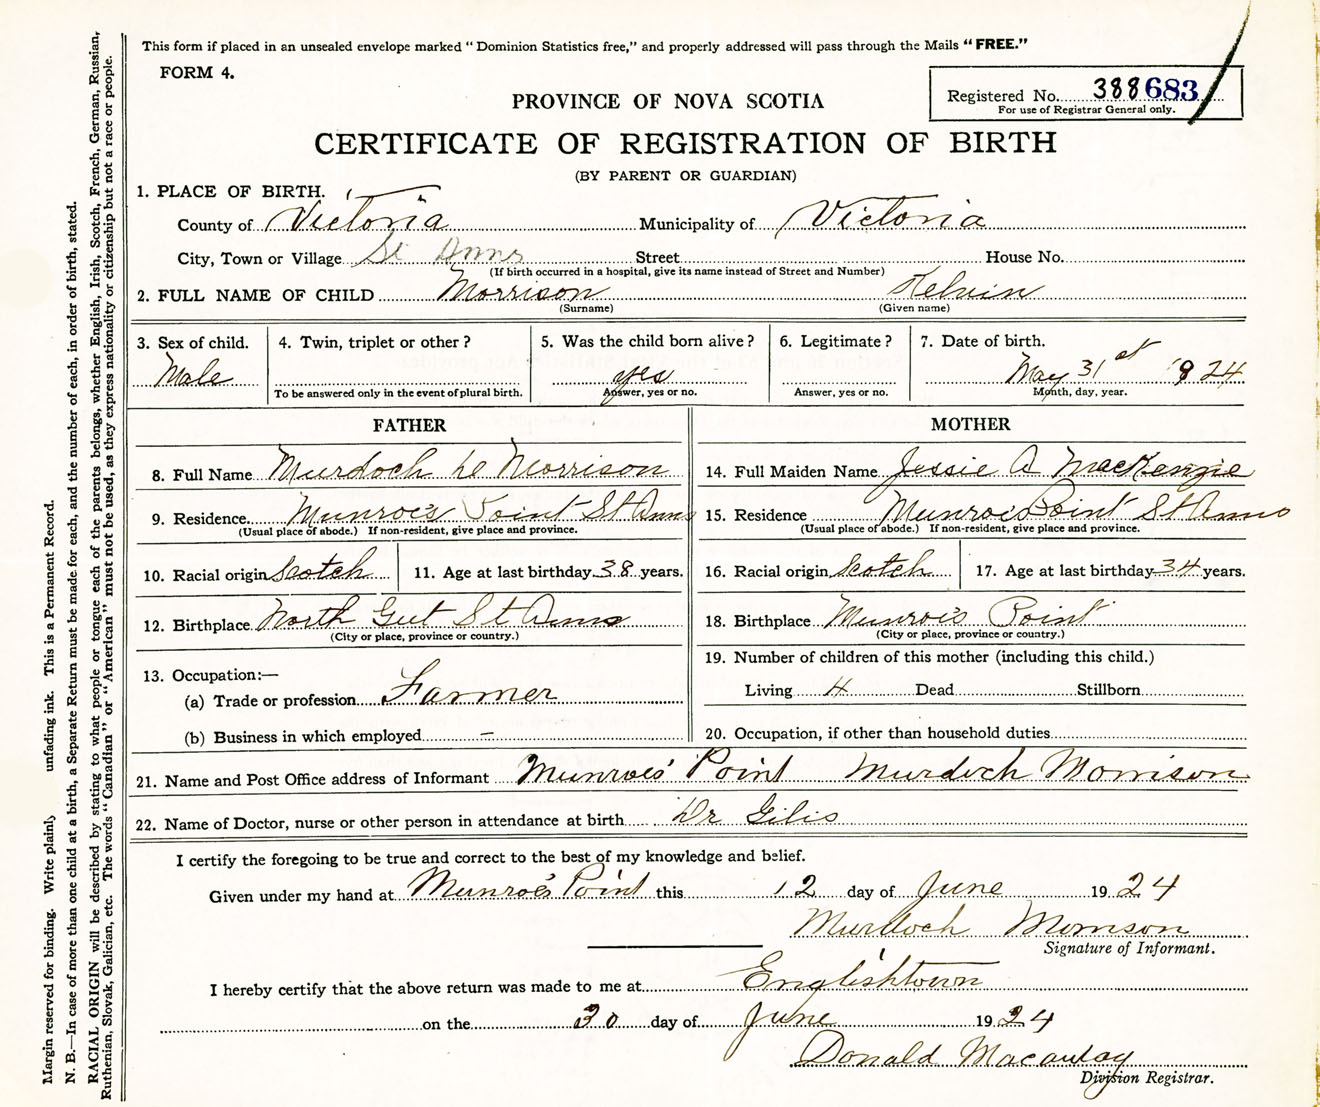 This form if placed in an unsealed envelope marked “Dominion Statistics free,” and properly addressed will pass through the Mails “FREE.”
FORM 4.
Registered No. 388683
For use of Registrar General only.
PROVINCE OF NOVA SCOTIA
CERTIFICATE OF REGISTRATION OF BIRTH
(BY PARENT OR GUARDIAN)
1. PLACE OF BIRTH.
County of Victoria Municipality of Victoria
City, Town or Village St Anns Street House No.
(If birth occurred in a hospital, give its name instead of Street and Number)
2. FULL NAME OF CHILD Morrison Kelvin
(Surname) (Given name)
3. Sex of child. 4. Twin, triplet or other? 5. Was the child born alive? 6. Legitimate? 7. Date of birth.
Male yes May 31st 1924
To be answered only in the event of plural birth. Answer, yes or no. Answer, yes or no. Month, day, year.
FATHER MOTHER
8. Full Name Murdoch D Morrison 14. Full Maiden Name Jessie A MacKenzie
9. Residence Munroe's Point St Anns 15. Residence Munroe's Point St Anns
(Usual place of abode.) If non-resident, give place and province. (Usual place of abode.) If non-resident, give place and province.
10. Racial origin Scotch 11. Age at last birthday 38 years. 16. Racial origin Scotch 17. Age at last birthday 34 years.
12. Birthplace North Gut St Anns 18. Birthplace Munroe's Point
(City or place, province or country.) (City or place, province or country.)
13. Occupation:— 19. Number of children of this mother (including this child.)
(a) Trade or profession Farmer Living 4 Dead Stillborn
(b) Business in which employed — 20. Occupation, if other than household duties
21. Name and Post Office address of Informant Munroes' Point Murdoch Morrison
22. Name of Doctor, nurse or other person in attendance at birth Dr Gilis
I certify the foregoing to be true and correct to the best of my knowledge and belief.
Given under my hand at Munroe's Point this 12 day of June 1924
Murdoch Morrison
Signature of Informant.
I hereby certify that the above return was made to me at Englishtown
on the 30 day of June 1924
Donald Macaulay
Division Registrar.
Margin reserved for binding. Write plainly unfading ink. This is a Permanent Record.
N. B.—In case of more than one child at a birth, a Separate Return must be made for each, and the number of each, in order of birth, stated.
RACIAL ORIGIN will be described by stating to what people or tongue each of the parents belongs, whether English, Irish, Scotch, French, German, Russian,
Ruthenian, Slovak, Galician, etc. The words “Canadian” or “American” must not be used, as they express nationality or citizenship but not a race or people.